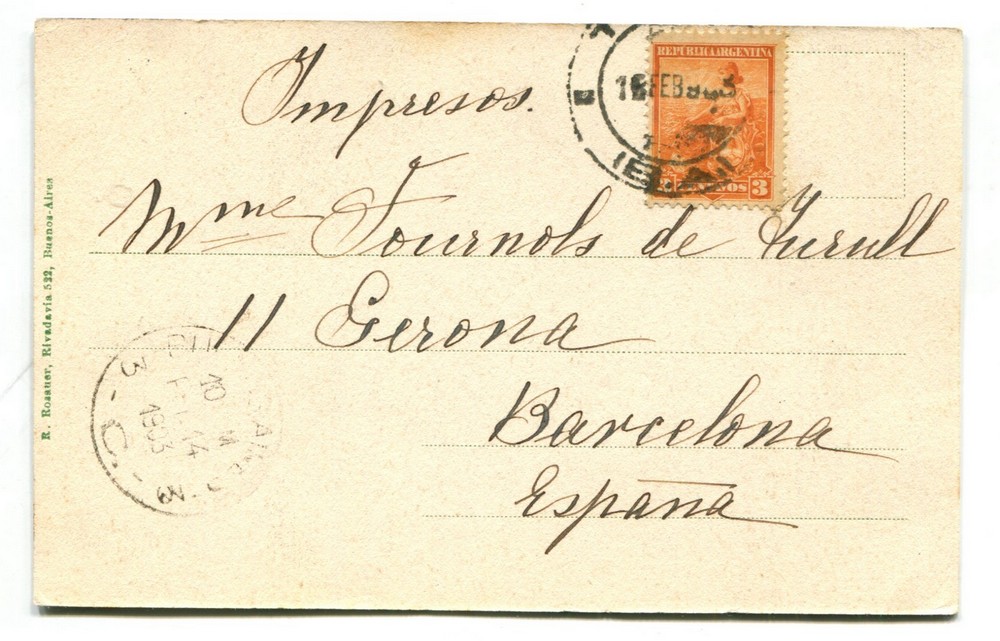 Impresos.
REPUBLICA ARGENTINA
FEB
3
Mme Tournols de Turull
11 Gerona
Barcelona
España
R. Rosauer, Rivadavia 522, Buenos-Aires
10
14
1903
3 - C - 3